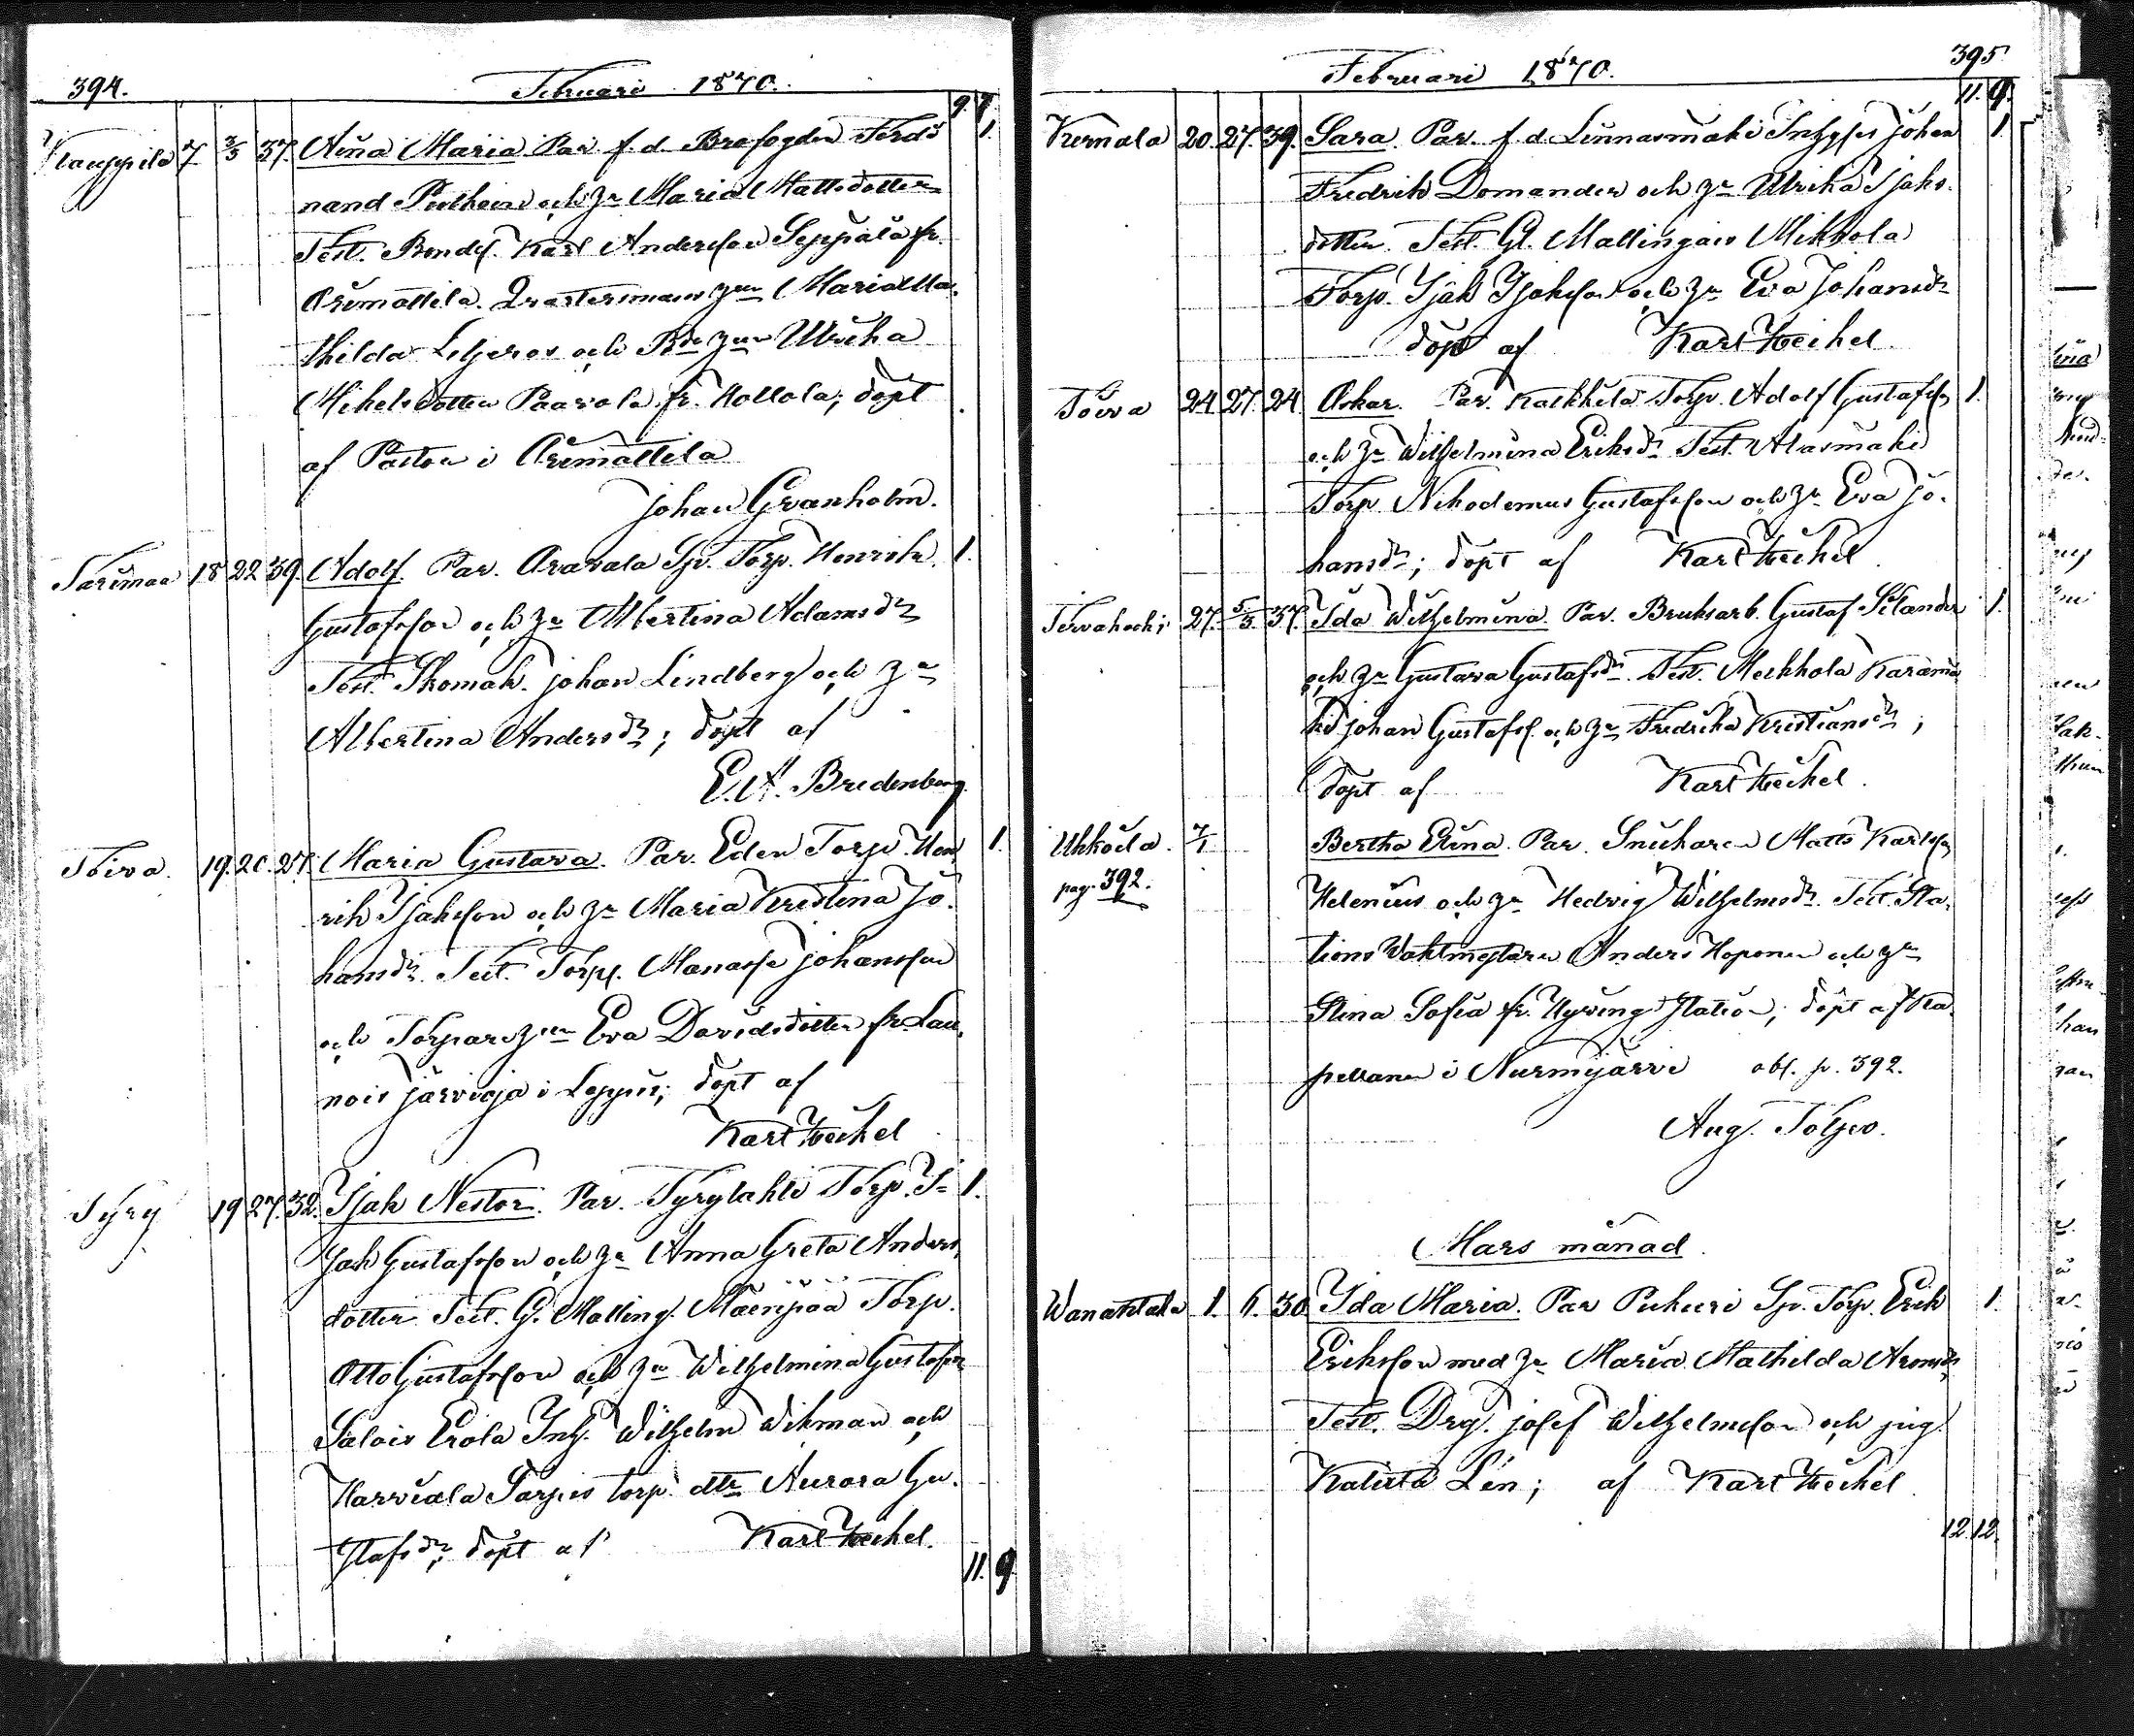 394.
Februari 1870.
9. 7.
Kauppila 7 2/3 37. Aina Maria. Par. f. d. Brofogden Ferdi 1.
nand Perlheim och hu Maria Mattsdotter
Test. Bondes. Karl Andersson Seppälä fr.
Orimattila. Qvartermans hun Maria Ma-
thilda Liljeros och Bde hun Ulrika
Mikelsdotter Paavola fr. Hollola; döpt
af Pastorn i Orimattila
Johan Granholm.
Sarimaa 18 22 39. Adolf. Par. Oravala Sp. Torp. Henrik 1.
Gustafsson och hu Albertina Adamsdr
Test. Skomak. Johan Lindberg och hu
Albertina Andersdr; döpt af
E. A. Bredenberg.
Toiva. 19. 20. 27. Maria Gustava. Par. Eden Torp. Hen 1.
rik Isaksson och hu Maria Kristina Jo-
hansdr. Test. Torps. Manasse Johansson
och Torparehun Eva Davidsdotter fr. Lau-
nois Järvioja i Loppis; döpt af
Karl Heikel
Syry 19 27. 32. Isak Nestor. Par. Syrylahti Torp. I- 1.
sak Gustafsson och hu Anna Greta Anders-
dotter Test. G. Malling. Mäenpää Torp.
Otto Gustafsson och hu Wilhelmina Gustafsdr
Salois Erola Inh. Wilhelm Wikman och
Harviala Sarpis torp. dtr Aurora Gu-
stafsdr; döpt af Karl Heikel.
11. 9.
395
Februari 1870.
11. 9.
Kernala 20. 27. 39. Sara. Par. f. d. Linnasmäki Inhyses Johan 1.
Fredrik Domander och hu Ulrika Isaks-
dotter. Test. Gl. Mallingais Mikkola
Torp. Isak Isaksson och hu Eva Johansdr
döpt af Karl Heikel.
Toiva 24 27. 24 Oskar. Par. Kalkkila Torp. Adolf Gustafsson 1.
och hu Wilhelmina Eriksdr Test. Alasmäki
Torp Nikodemus Gustafsson och hu Eva Jo-
hansdr; döpt af Karl Heikel
Tervakoski 27. 5/3. 37. Ida Wilhelmina. Par. Bruksarb. Gustaf Silander 1.
och hu Gustava Gustafsdr. Test. Merkkola Karamä
ki Johan Gustafss. och hu Fredrika Kristiansdr;
döpt af Karl Heikel.
Uhkoila. 7/1 Bertha Elina. Par. Snickaren Matts Karlsson
pag. 392. Helenius och hu Hedvig Wilhelmsdr Test. Sta-
tions Vaktmästaren Anders Koponen och hu
Stina Sofia fr. Hyvinge Station; döpt af Ka-
pellanen i Nurmijärvi obs. p. 392.
Aug. Toljev.
Mars månad.
Wanantaka 1. 6. 30. Ida Maria. Par Pukuri Sp. Torp. Erik 1.
Eriksson med hu Maria Mathilda Aronsdr
Test. Drg. Josef Wilhelmsson och pig.
Kaiista Lén; af Karl Heikel.
12. 12.